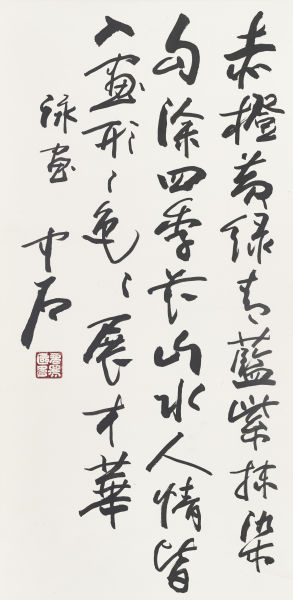 赤橙黄绿青藍紫抹染
勾涂四季花山水人情皆
入画形〻色〻展才華
咏画
中石